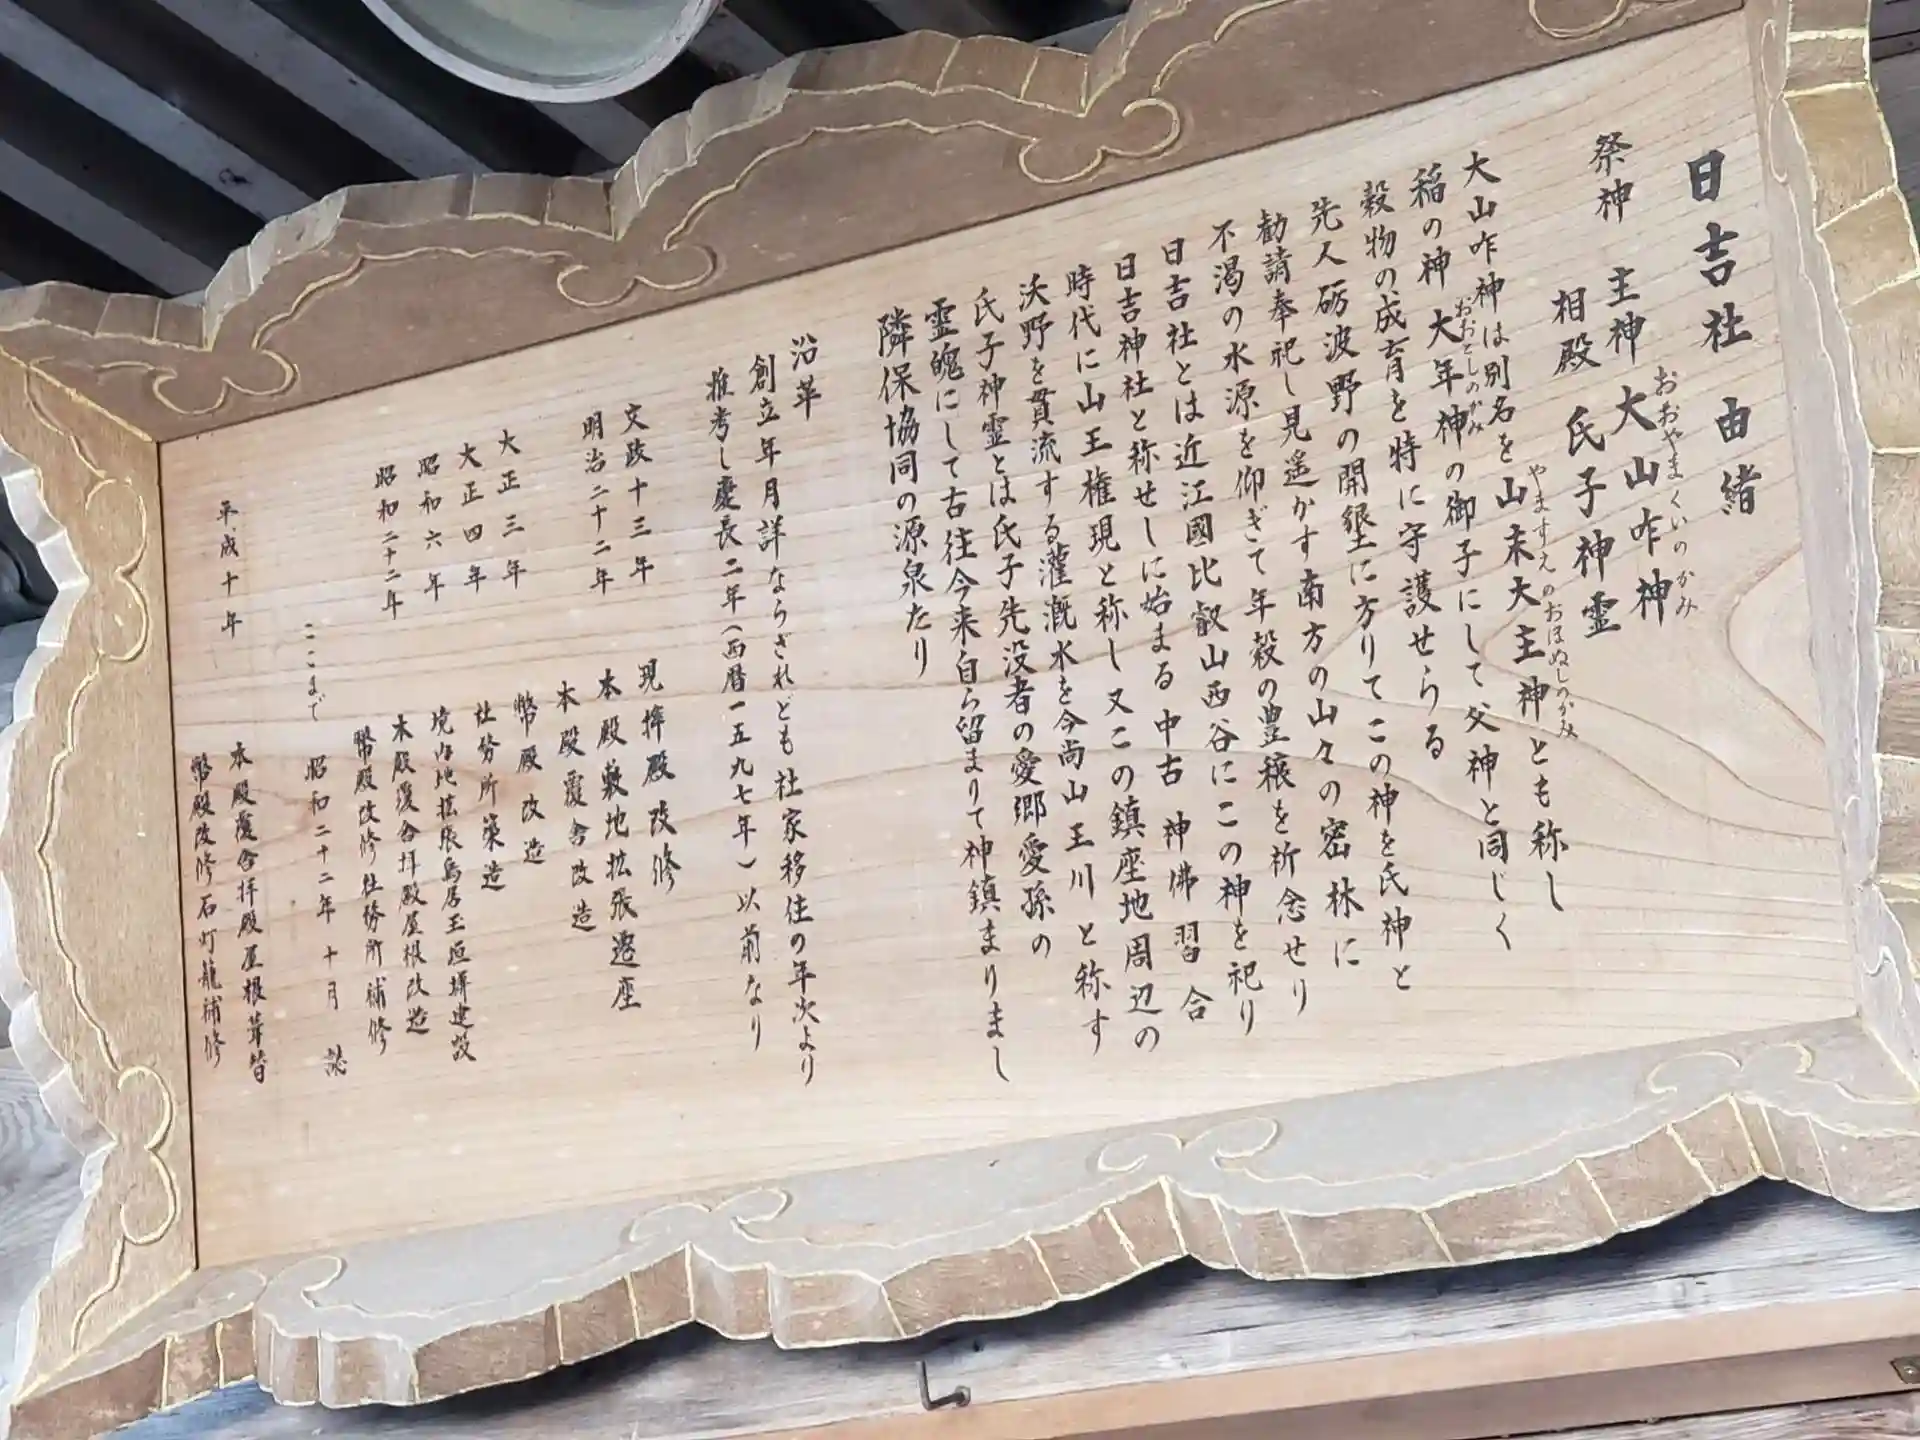 日吉社 由緒
祭神 主神 大山咋神
おおやまくいのかみ
相殿 氏子神霊
大山咋神は別名を山末大主神とも称し
やますえのおほぬしのかみ
稲の神 大年神の御子にして父神と同じく
おおとしのかみ
穀物の成育を特に守護せらる
先人砺波野の開墾に方りてこの神を氏神と
勧請奉祀し見遥かす南方の山々の密林に
不渇の水源を仰ぎて年穀の豊穣を祈念せり
日吉社とは近江國比叡山西谷にこの神を祀り
日吉神社と称せしに始まる 中古 神佛習合
時代に山王権現と称し又この鎮座地周辺の
沃野を貫流する灌漑水を今尚山王川と称す
氏子神霊とは氏子先没者の愛郷愛孫の
霊魄にして古往今来自ら留まりて神鎮まりまし
隣保協同の源泉たり
沿革
創立年月詳ならざれども社家移住の年次より
推考し慶長二年(西暦一五九七年)以前なり
文政十三年 現拝殿改修
明治二十二年 本殿敷地拡張遷座
本殿覆舎改造
大正三年 幣殿改造
大正四年 社務所築造
昭和六年 境内地拡張鳥居玉垣塀建設
昭和二十二年 本殿覆舎拝殿屋根改造
幣殿改修社務所補修
ここまで 昭和二十二年十月 誌
平成十年 本殿覆舎拝殿屋根葺替
幣殿改修石灯籠補修